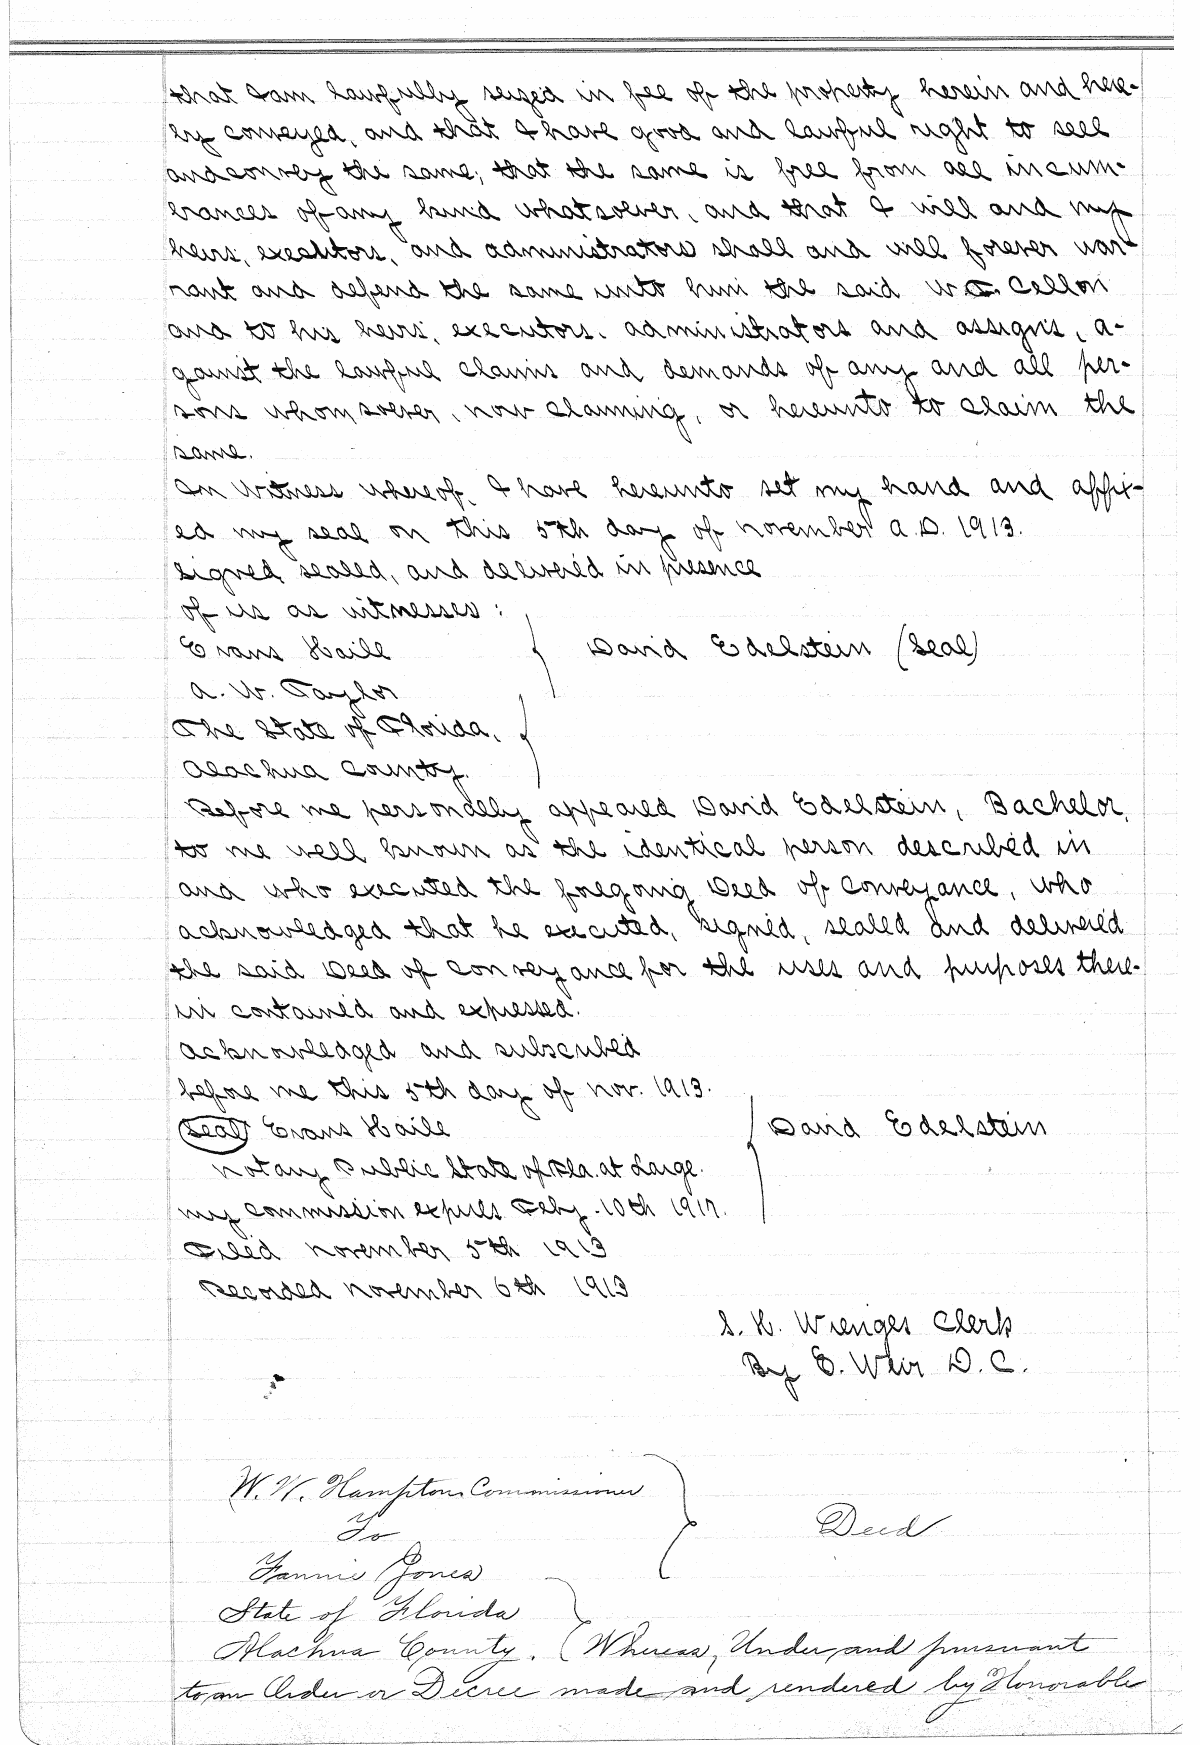 that I am lawfully seized in fee of the property herein and here-
by conveyed, and that I have good and lawful right to sell
and convey the same; that the same is free from all incum-
brances of any kind whatsoever, and that I will and my
heirs, executors, and administrators shall and will forever war-
rant and defend the same unto him the said W. C. Cellon
and to his heirs, executors, administrators and assigns, a-
gainst the lawful claims and demands of any and all per-
sons whomsoever, now claiming, or hereunto to claim the
same.
In Witness whereof, I have hereunto set my hand and affix-
ed my seal on this 5th day of November A.D. 1913.
Signed, sealed, and delivered in presence
of us as witnesses :
Evans Haile
David Edelstein (Seal)
A. W. Taylor
The State of Florida,
Alachua County.
Before me personally appeared David Edelstein, Bachelor,
to me well known as the identical person described in
and who executed the foregoing Deed of Conveyance, who
acknowledged that he executed, signed, sealed and delivered
the said Deed of Conveyance for the uses and purposes there-
in contained and expressed.
Acknowledged and subscribed
before me this 5th day of Nov. 1913.
Seal Evans Haile
David Edelstein
Notary Public State of Fla. at Large.
My commission expires Feby. 10th 1917.
Filed November 5th 1913
Recorded November 6th 1913
S. H. Wienges Clerk
By E. Weir D. C.
W. W. Hampton Commissioner
To
Deed
Fannie Jones
State of Florida
Alachua County. (Whereas, Under and pursuant
to an Order or Decree made and rendered by Honorable